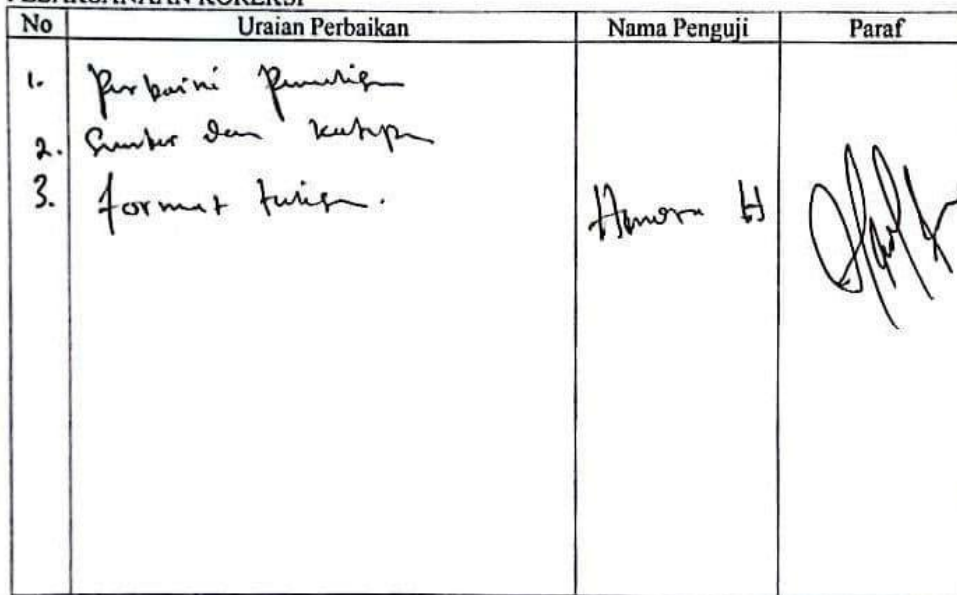 PELAKSANAAN KOREKSI
No Uraian Perbaikan Nama Penguji Paraf
1. Perbaiki Penulisan
2. Sumber dan kutipan
3. format tulisan.
H